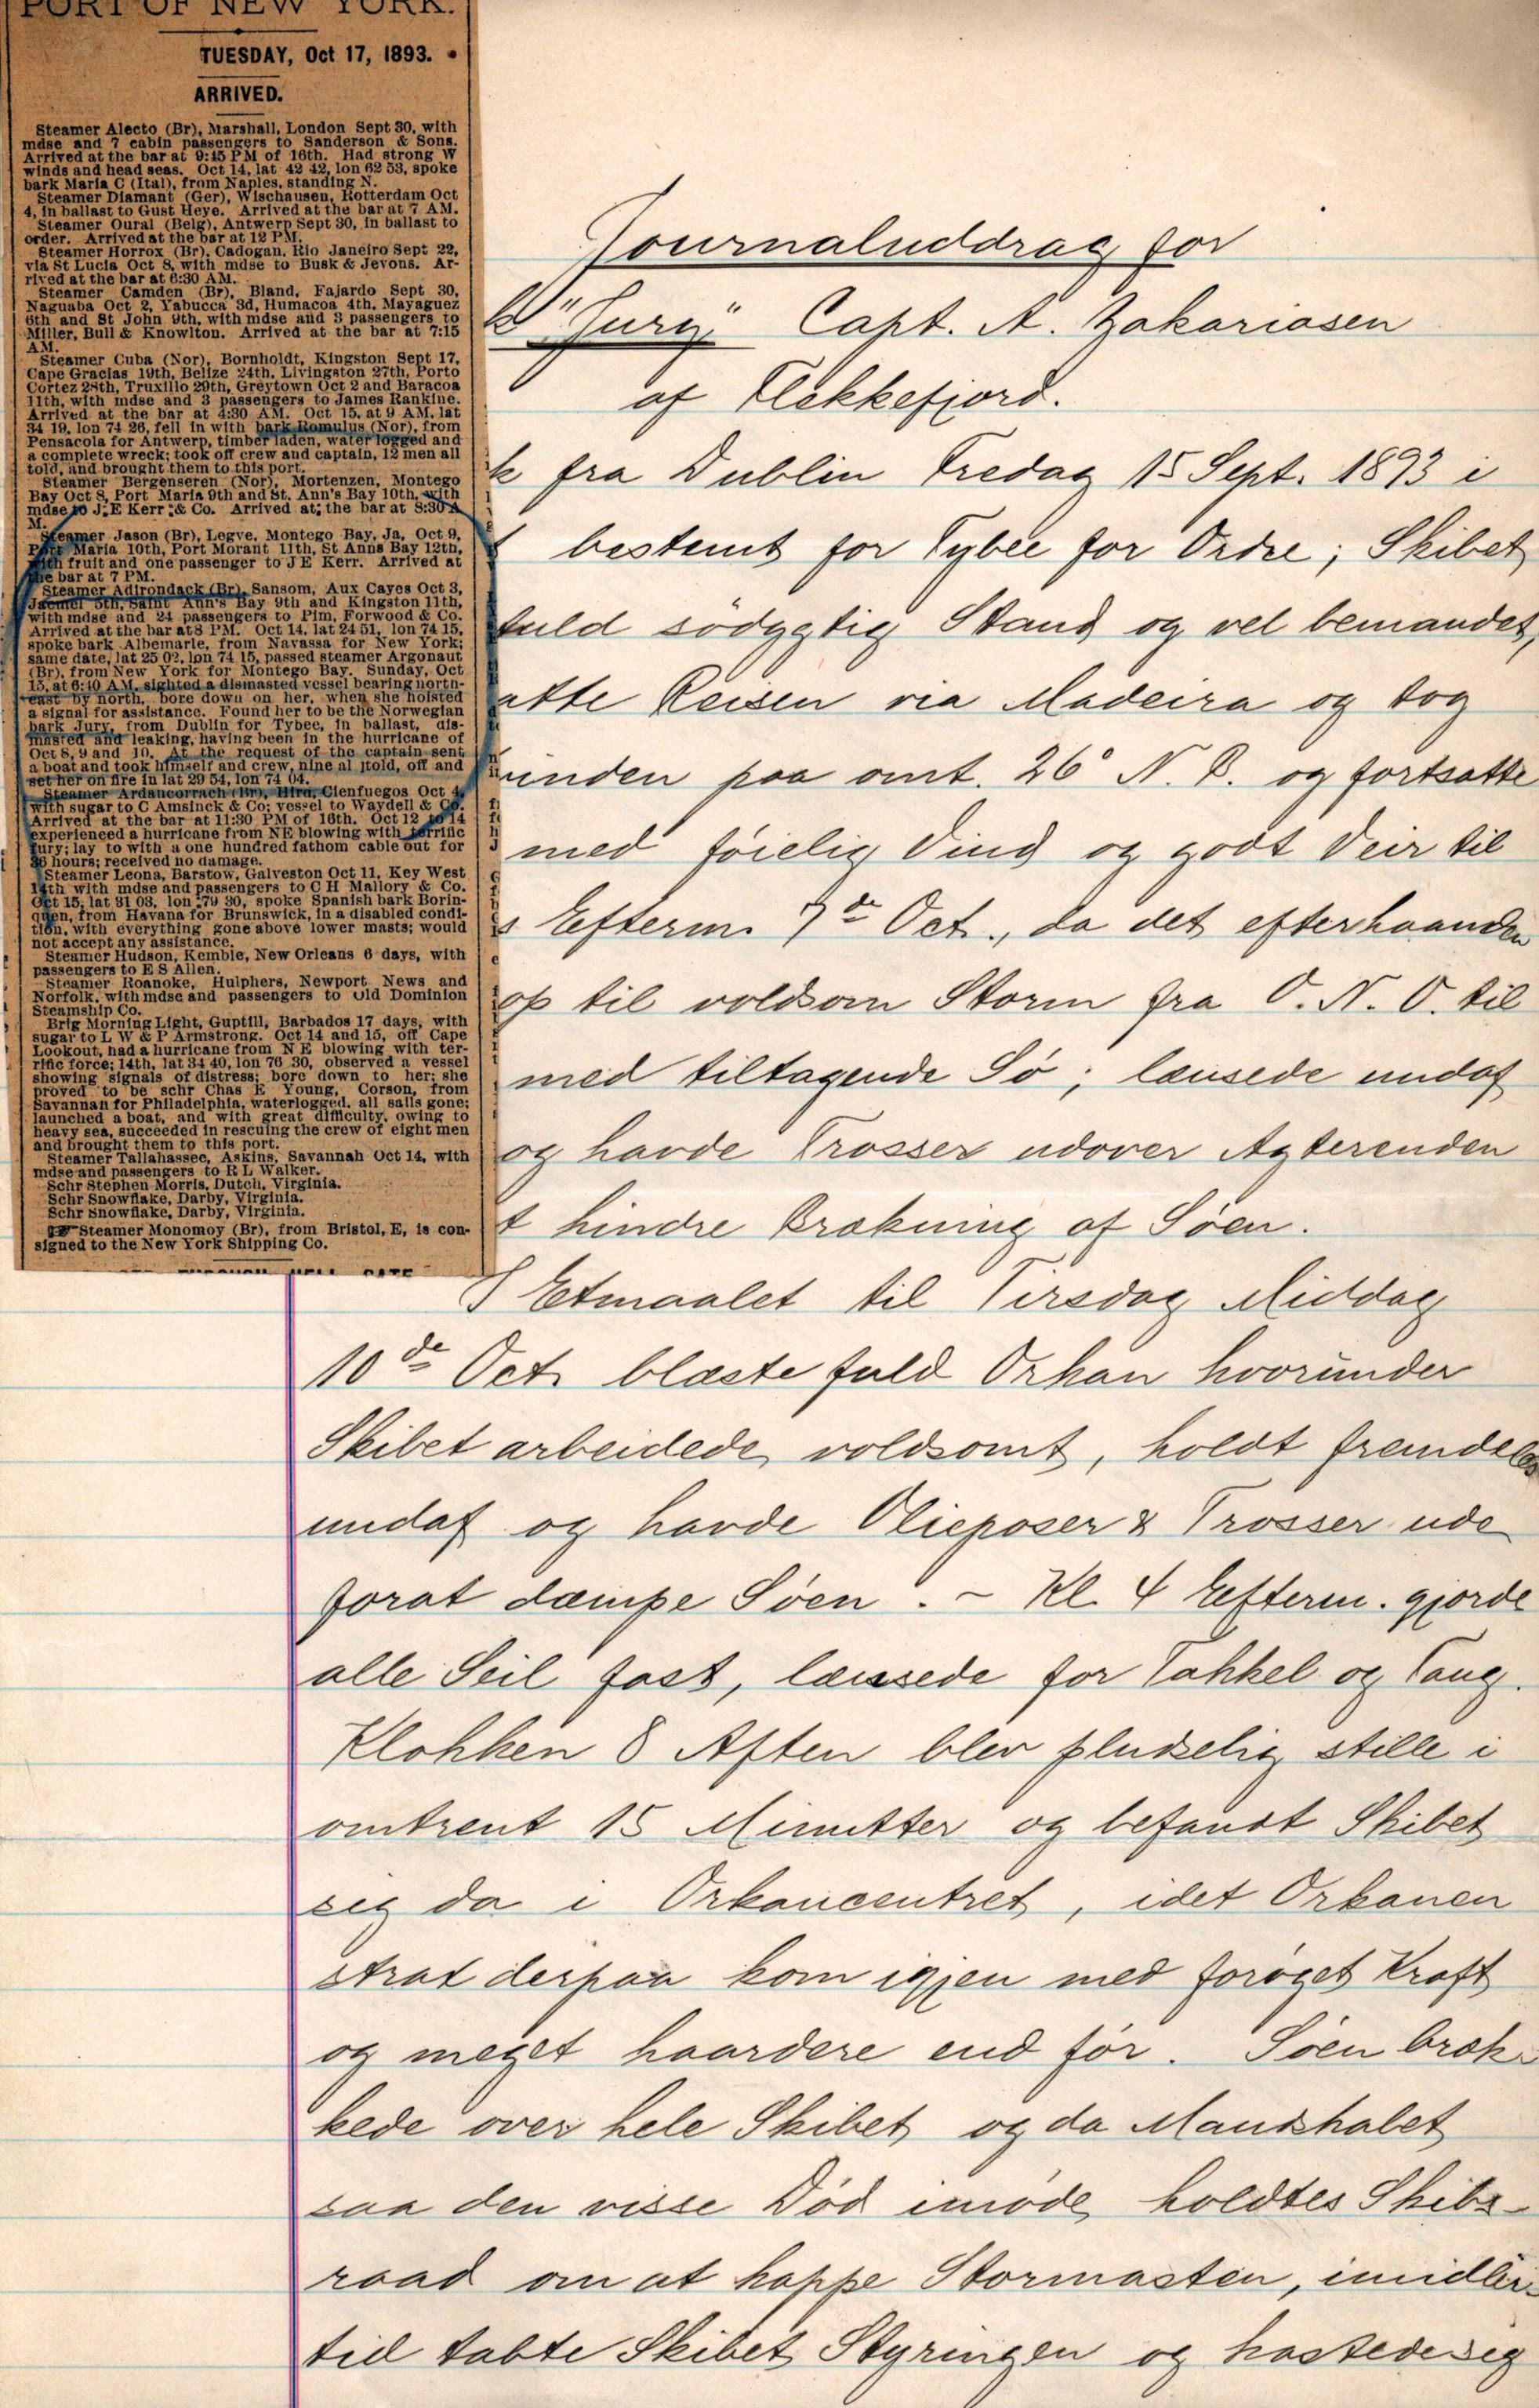 PORT OF NEW YORK.
TUESDAY, Oct 17, 1893.
ARRIVED.
Steamer Alecto (Br), Marshall, London Sept 30, with
mdse and 7 cabin passengers to Sanderson & Sons.
Arrived at the bar at 9:45 PM of 16th. Had strong W
winds and head seas. Oct 14, lat 42 42, lon 62 53, spoke
bark Maria C (Ital), from Naples, standing N.
Steamer Diamant (Ger), Wischausen, Rotterdam Oct
4, in ballast to Gust Heye. Arrived at the bar at 7 AM.
Steamer Oural (Belg), Antwerp Sept 30, in ballast to
order. Arrived at the bar at 12 PM.
Steamer Horrox (Br), Cadogan, Rio Janeiro Sept 22,
via St Lucia Oct 8, with mdse to Busk & Jevons. Ar-
rived at the bar at 6:30 AM.
Steamer Camden (Br), Bland, Fajardo Sept 30,
Naguaba Oct 2, Yabucca 3d, Humacoa 4th, Mayaguez
6th and St John 9th, with mdse and 3 passengers to
Miller, Bull & Knowlton. Arrived at the bar at 7:15
AM.
Steamer Cuba (Nor), Bornholdt, Kingston Sept 17,
Cape Gracias 19th, Belize 24th, Livingston 27th, Porto
Cortez 28th, Truxillo 29th, Greytown Oct 2 and Baracoa
11th, with mdse and 3 passengers to James Rankine.
Arrived at the bar at 4:30 AM. Oct 15, at 9 AM, lat
34 19, lon 74 26, fell in with bark Romulus (Nor), from
Pensacola for Antwerp, timber laden, water logged and
a complete wreck; took off crew and captain, 12 men all
told, and brought them to this port.
Steamer Bergenseren (Nor), Mortenzen, Montego
Bay Oct 8, Port Maria 9th and St. Ann's Bay 10th, with
mdse to J. E Kerr & Co. Arrived at the bar at 8:30 A
M.
Steamer Jason (Br), Legve, Montego Bay, Ja, Oct 9,
Port Maria 10th, Port Morant 11th, St Anns Bay 12th,
with fruit and one passenger to J E Kerr. Arrived at
the bar at 7 PM.
Steamer Adirondack (Br), Sansom, Aux Cayes Oct 3,
Jacmel 5th, Saint Ann's Bay 9th and Kingston 11th,
with mdse and 24 passengers to Pim, Forwood & Co.
Arrived at the bar at 8 PM. Oct 14, lat 24 51, lon 74 15,
spoke bark Albemarle, from Navassa for New York;
same date, lat 25 02, lon 74 15, passed steamer Argonaut
(Br), from New York for Montego Bay. Sunday, Oct
15, at 6:10 AM, sighted a dismasted vessel bearing north-
east by north, bore down on her, when she hoisted
a signal for assistance. Found her to be the Norwegian
bark Jury, from Dublin for Tybee, in ballast, dis-
masted and leaking, having been in the hurricane of
Oct 8, 9 and 10. At the request of the captain sent
a boat and took himself and crew, nine al ltold, off and
set her on fire in lat 29 54, lon 74 04.
Steamer Ardancorrach (Br), Hird, Cienfuegos Oct 4,
with sugar to C Amsinck & Co; vessel to Waydell & Co.
Arrived at the bar at 11:30 PM of 16th. Oct 12 to 14
experienced a hurricane from NE blowing with terrific
fury; lay to with a one hundred fathom cable out for
36 hours; received no damage.
Steamer Leona, Barstow, Galveston Oct 11, Key West
14th with mdse and passengers to C H Mallory & Co.
Oct 15, lat 31 03, lon 79 30, spoke Spanish bark Borin-
quen, from Havana for Brunswick, in a disabled condi-
tion, with everything gone above lower masts; would
not accept any assistance.
Steamer Hudson, Kemble, New Orleans 6 days, with
passengers to E S Allen.
Steamer Roanoke, Hulphers, Newport News and
Norfolk, with mdse and passengers to Old Dominion
Steamship Co.
Brig Morning Light, Guptill, Barbados 17 days, with
sugar to L W & P Armstrong. Oct 14 and 15, off Cape
Lookout, had a hurricane from N E blowing with ter-
rific force; 14th, lat 34 40, lon 76 30, observed a vessel
showing signals of distress; bore down to her; she
proved to be schr Chas E Young, Corson, from
Savannah for Philadelphia, waterlogged, all sails gone;
launched a boat, and with great difficulty, owing to
heavy sea, succeeded in rescuing the crew of eight men
and brought them to this port.
Steamer Tallahassee, Askins, Savannah Oct 14, with
mdse and passengers to R L Walker.
Schr Stephen Morris, Dutch, Virginia.
Schr Snowflake, Darby, Virginia.
Schr Snowflake, Darby, Virginia.
Steamer Monomoy (Br), from Bristol, E, is con-
signed to the New York Shipping Co.
Journaluddrag for
k "Jury" Capt. A. Zakariasen
af Flekkefjord.
k fra Dublin Fredag 15 Sept. 1893 i
t bestemt for Tybee for Ordre; Skibet
fuld södygtig Stand og vel bemandet,
atte Reisen via Madeira og tog
inden paa omt. 26° N. B. og fortsatte
med föielig Vind og godt Veir til
s Efterm. 7de Oct., da det efterhaanden
op til voldsom Storm fra O. N. O. til
med tiltagende Sö; lænsede undaf
og havde Trosser udover Agterenden
t hindre Brækning af Söen.
I Etmaalet til Tirsdag Middag
10de Oct. blæste fuld Orkan hvorunder
Skibet arbeidede voldsomt, holdt fremdeles
undaf og havde Olieposer & Trosser ude
forat dæmpe Söen. - Kl. 4 Efterm. gjorde
alle Seil fast, lænsede for Takkel og Taug.
Klokken 8 Aften blev pludselig stille i
omtrent 15 Minutter og befandt Skibet
sig da i Orkancentret, idet Orkanen
strax derpaa kom igjen med foröget Kraft
og meget haardere end för. Söen bræk-
kede over hele Skibet og da Mandskabet
saa den visse Död imöde holdtes Skibs-
raad om at kappe Stormasten, imidler-
tid tabte Skibet Styringen og kastede sig